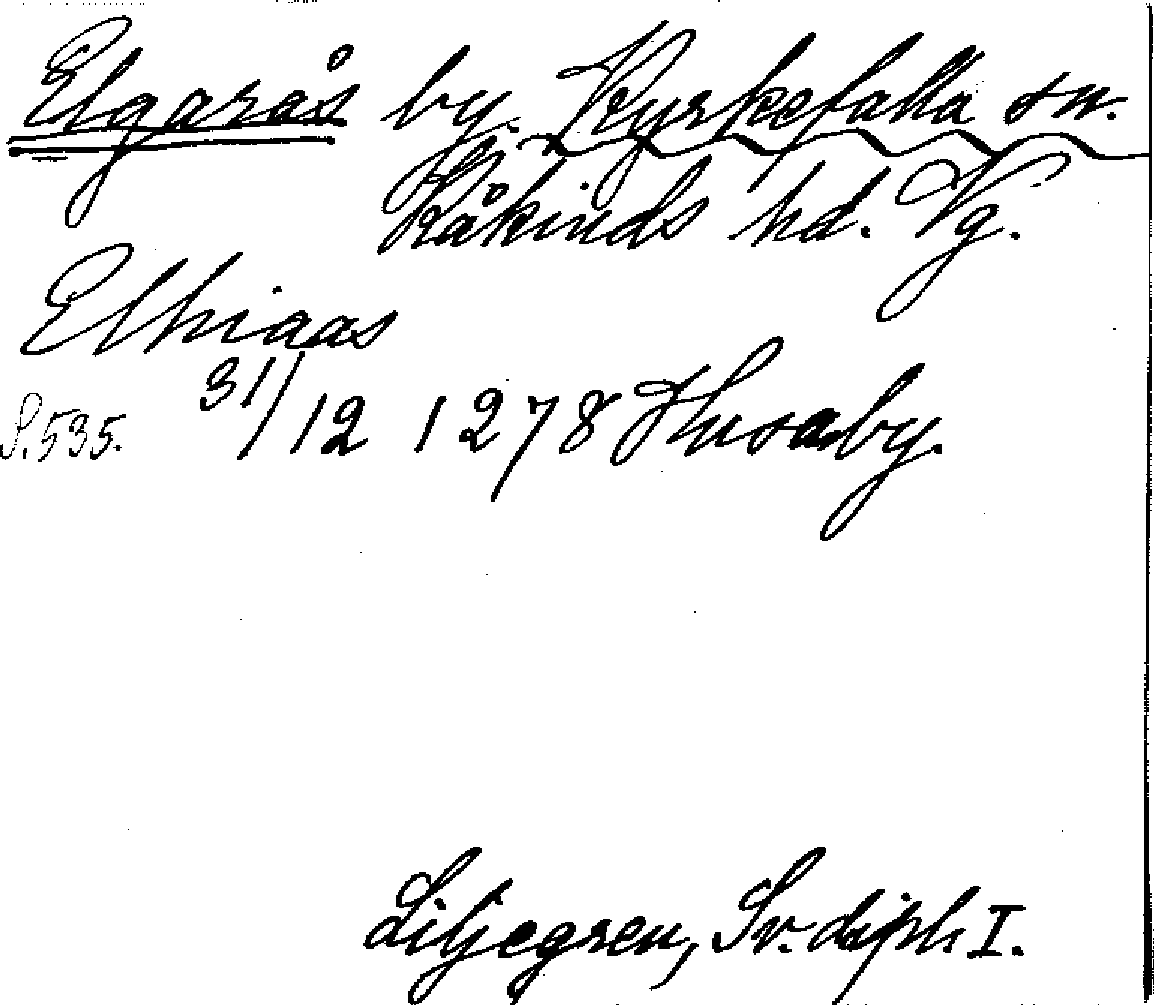 Elgarås by. Kyrkefalla sn.
Kåkinds hd. Vg.
Elhiaas
S. 535. 31/12 1278 Husaby.
Liljegren, Sv. dipl. I.